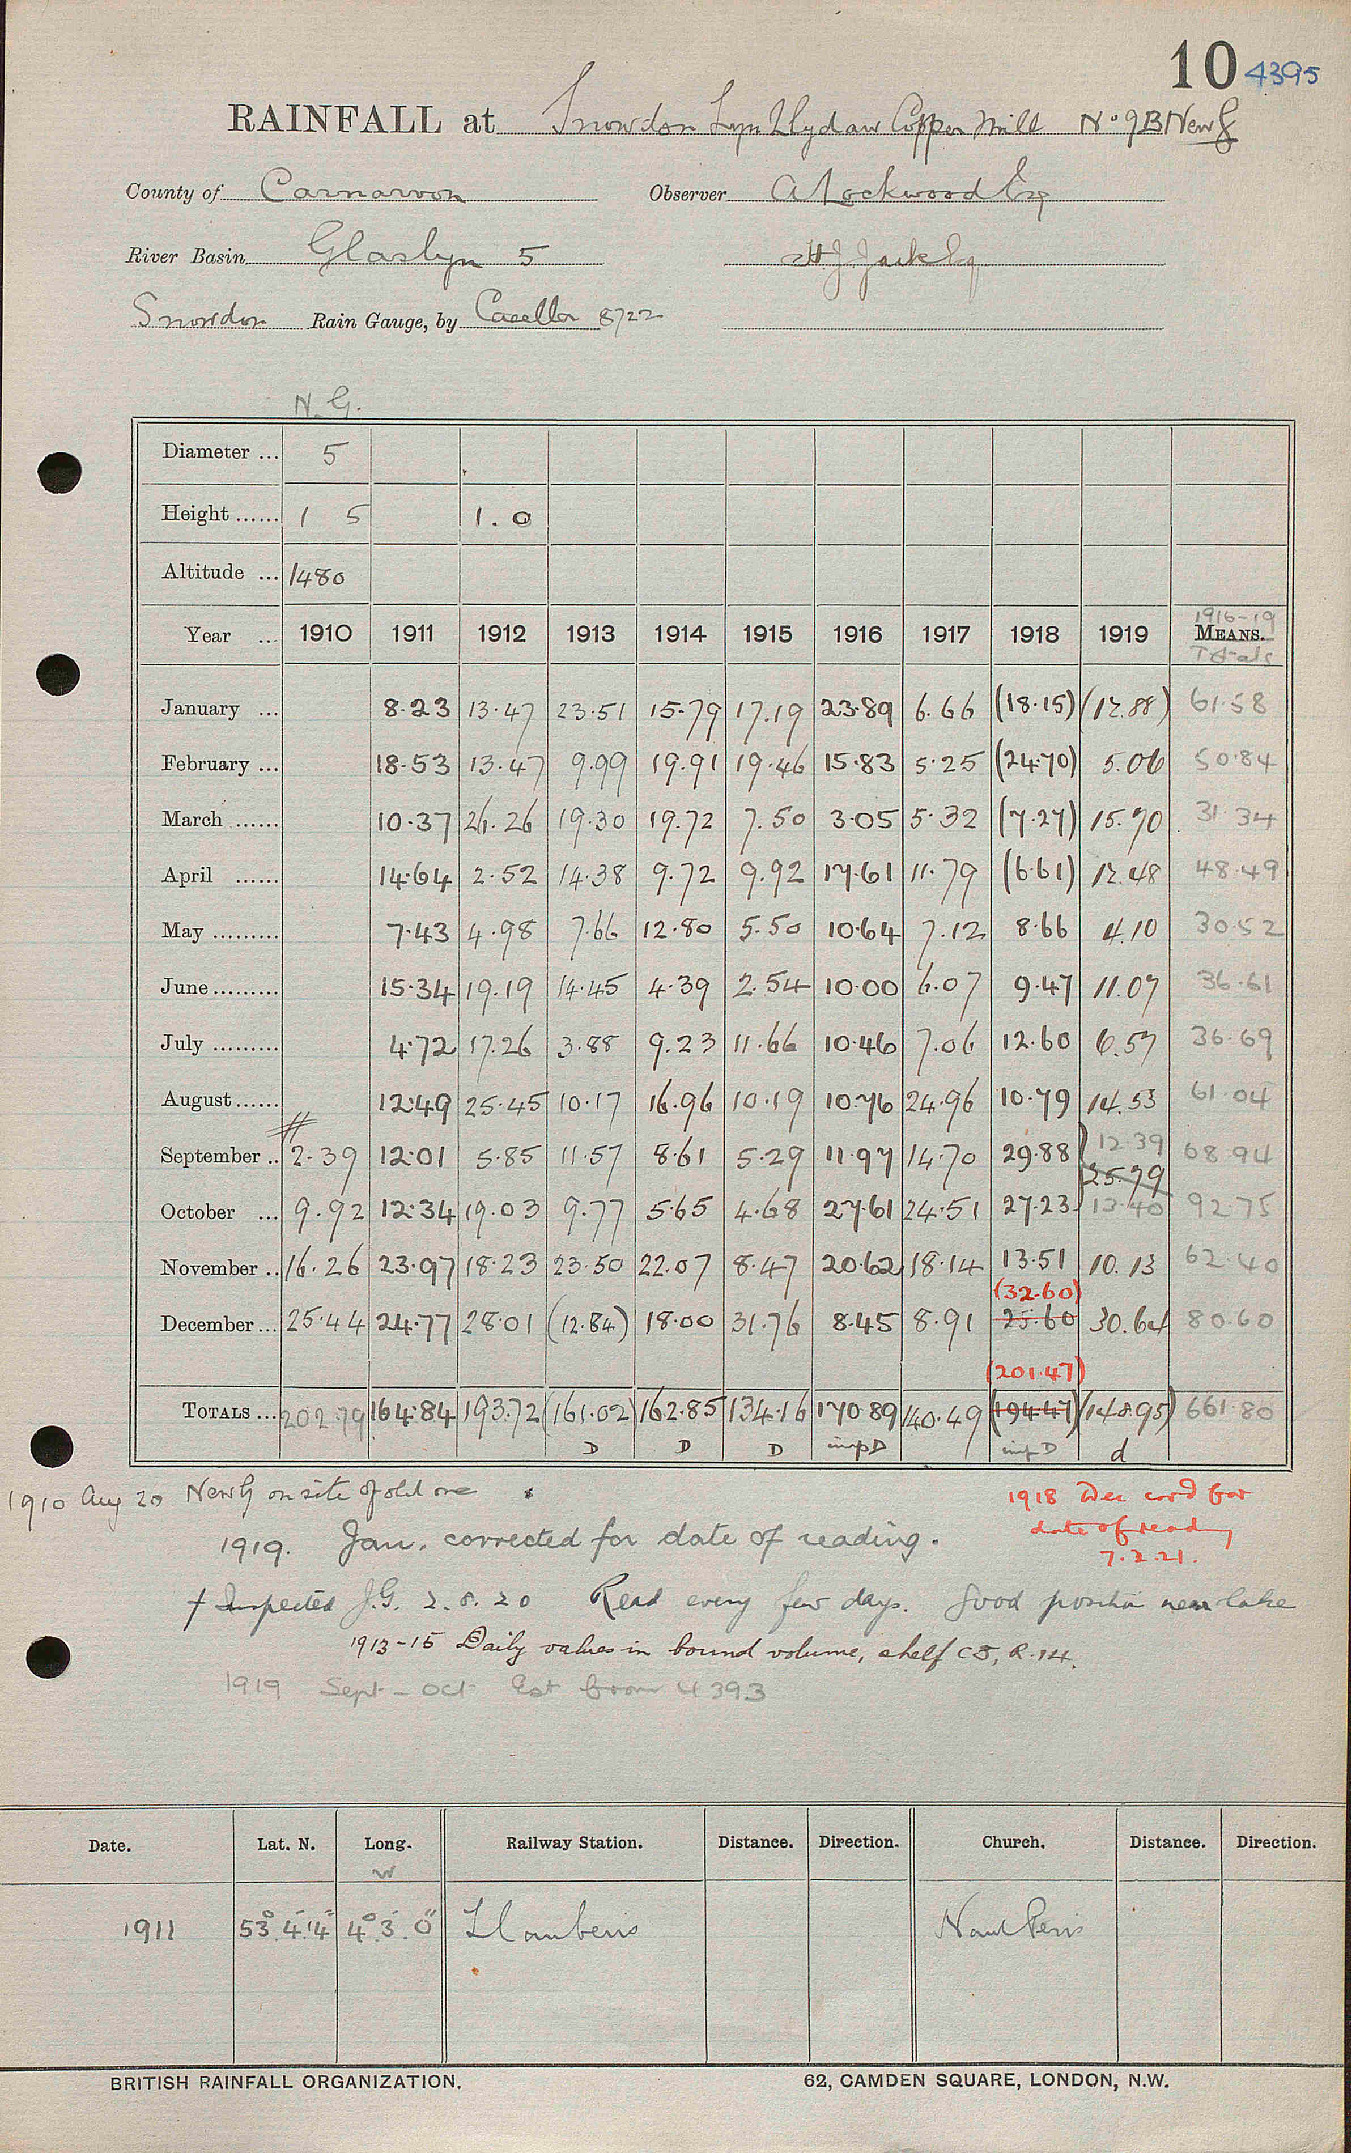 10 4395
RAINFALL at Snowdon Lyn Llydaw Copper Mill No 9B New G
County of Carnarvon Observer A Lockwood Esq
River Basin Glaslyn 5 H J Jack Esq
Snowdon Rain Gauge, by Casella 8722
N. G.
Diameter ... 5
Height ...... 1 5 1.0
Altitude ... 1480
1916-19
Year ... 1910 1911 1912 1913 1914 1915 1916 1917 1918 1919 MEANS.
Totals
January ... 8.23 13.47 23.51 15.79 17.19 23.89 6.66 (18.15) (12.88) 61.58
February ... 18.53 13.47 9.99 19.91 19.46 15.83 5.25 (24.70) 5.06 50.84
March ...... 10.37 26.26 19.30 19.72 7.50 3.05 5.32 (7.27) 15.70 31.34
April ...... 14.64 2.52 14.38 9.72 9.92 17.61 11.79 (6.61) 12.48 48.49
May ......... 7.43 4.98 7.66 12.80 5.50 10.64 7.12 8.66 4.10 30.52
June ......... 15.34 19.19 14.45 4.39 2.54 10.00 6.07 9.47 11.07 36.61
July ......... 4.72 17.26 3.88 9.23 11.66 10.46 7.06 12.60 6.57 36.69
August ...... 12.49 25.45 10.17 16.96 10.19 10.76 24.96 10.79 14.53 61.04
September .. 2.39 12.01 5.85 11.57 8.61 5.29 11.97 14.70 29.88 12.39 68.94
25.79
October ... 9.92 12.34 19.03 9.77 5.65 4.68 27.61 24.51 27.23 13.40 92.75
November .. 16.26 23.97 18.23 23.50 22.07 8.47 20.62 18.14 13.51 10.13 62.40
(32.60)
December ... 25.44 24.77 28.01 (12.84) 18.00 31.76 8.45 8.91 25.60 30.64 80.60
(201.47)
TOTALS ... 202.79 164.84 193.72 (161.02) 162.85 134.16 170.89 140.49 (194.47) (148.95) 661.80
D D D imp D imp D d
1910 Aug 20 New G on site of old one
1918 Dec corrd for
date of reading
7.2.21.
1919. Jan. corrected for date of reading.
† Inspected J.G. 2.8.20 Read every few days. Good position near lake
1913-15 Daily values in bound volume, shelf C5, R.14.
1919 Sept - Oct Est from 4393
Date. Lat. N. Long. Railway Station. Distance. Direction. Church. Distance. Direction.
W
1911 53° 4' 14" 4° 3' 0" Llanberis Nant Peris
BRITISH RAINFALL ORGANIZATION. 62, CAMDEN SQUARE, LONDON, N.W.